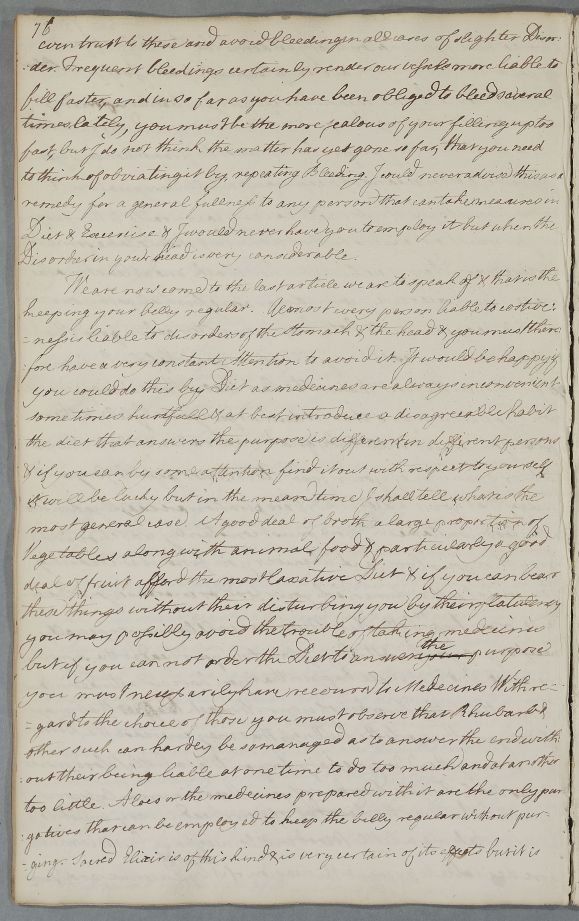 76
even trust to these and avoid bleeding in all cases of slighter Disor-
-der. Frequent bleedings certainly render our vessels more liable to
fill faster, and in so far as you have been obliged to bleed several
times lately, you must be the more jealous of your filling up too
fast, but I do not think the matter has yet gone so far, that you need
to think of obviating it by repeating Bleeding. I could never advise this as a
remedy for a general fullness to any person that can take measures in
Diet & Excercise & I would never have you to employ it but when the
Disorder in your head is very considerable.
We are now come to the last article we are to speak of & that is the
keeping your belly regular. Almost every person liable to costive-
-ness is liable to disorders of the Stomach & the head & you must there
fore have a very constant attention to avoid it. It would be happy if
you could do this by Diet as medecines are always inconvenient
sometimes hurtfull & at best introduce a disagreeable habit
the diet that answers the purpose is different in different persons
& if you can by some attention find it out with respect to yourself
it will be lucky but in the mean time I shall tell what is the
most general case. A good deal of broth a large proportion of
Vegetables along with animal food & particularly a good
deal of fruit afford the most laxative Diet & if you can bear
these things without their disturbing you by their flatulency
you may possibly avoid the trouble of taking medecines
but if you can not order the Diet to answer the purpose
you must necessarily have recourse to Medecines With re-
-gard to the choice of those you must observe that Rhubarb &
other such can hardly be so managed as to answer the end with
-out their being liable at one time to do too much and at another
too little. Aloes or the medecines prepared with it are the only pur
-gatives that can be employed to keep the belly regular without pur-
-ging. Sacred Elixir is of this kind & is very certain of its effects but it is